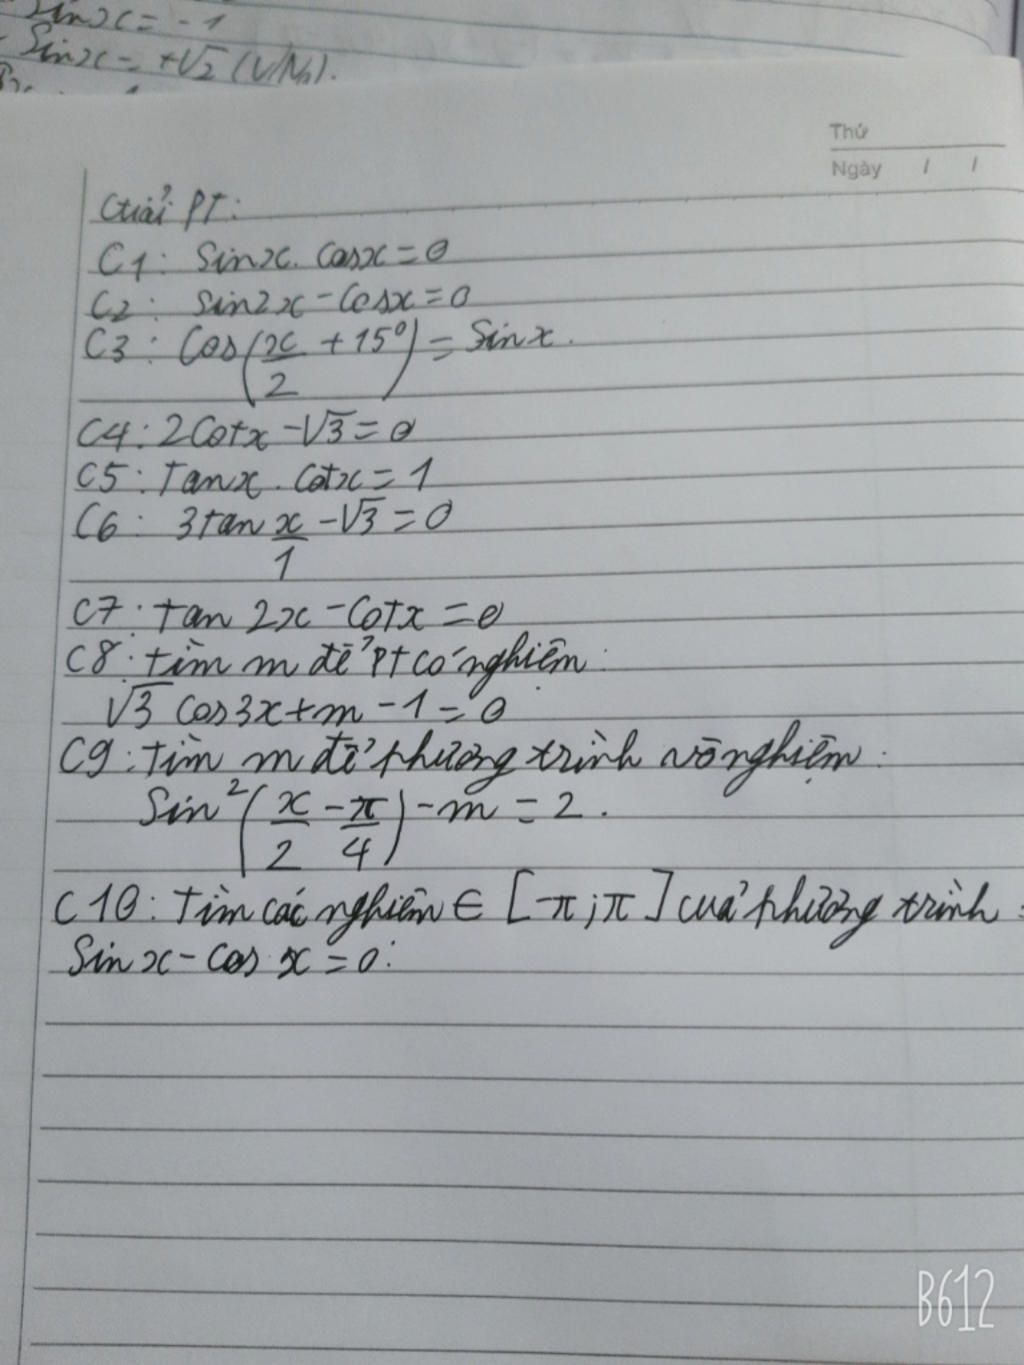 Sinx = -1
Sinx = +√2 (V/No).
Thứ
Ngày / /
Giải PT:
C1: Sinx. Cosx = 0
C2: Sin2x - Cosx = 0
C3: Cos(x/2 + 15°) = Sinx.
C4: 2Cotx - √3 = 0
C5: Tanx. Cotx = 1
C6: 3tan x/1 - √3 = 0
C7: tan 2x - Cotx = 0
C8: tìm m để PT có nghiệm:
√3 Cos3x + m - 1 = 0
C9: Tìm m để phương trình vô nghiệm:
Sin²(x/2 - π/4) - m = 2.
C10: Tìm các nghiệm ∈ [-π; π] của phương trình:
Sinx - Cos x = 0:
B612